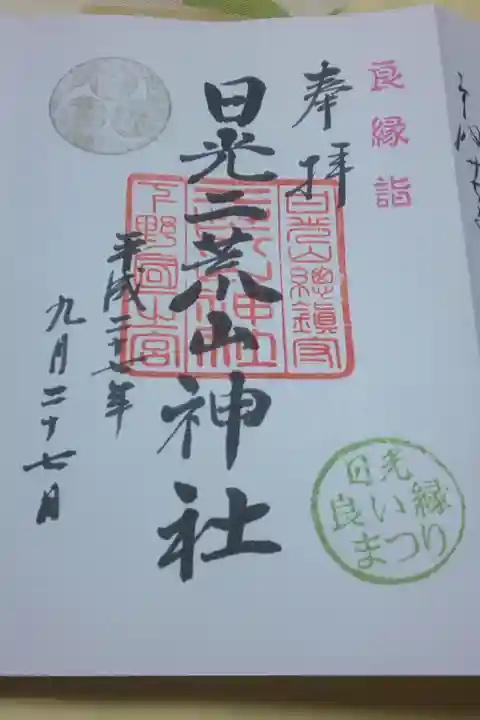 良縁詣
奉拝
日光二荒山神社
日光山總鎮守
二荒山神社
下野國一宮
平成二十七年
九月二十七日
日光
良い縁
まつり